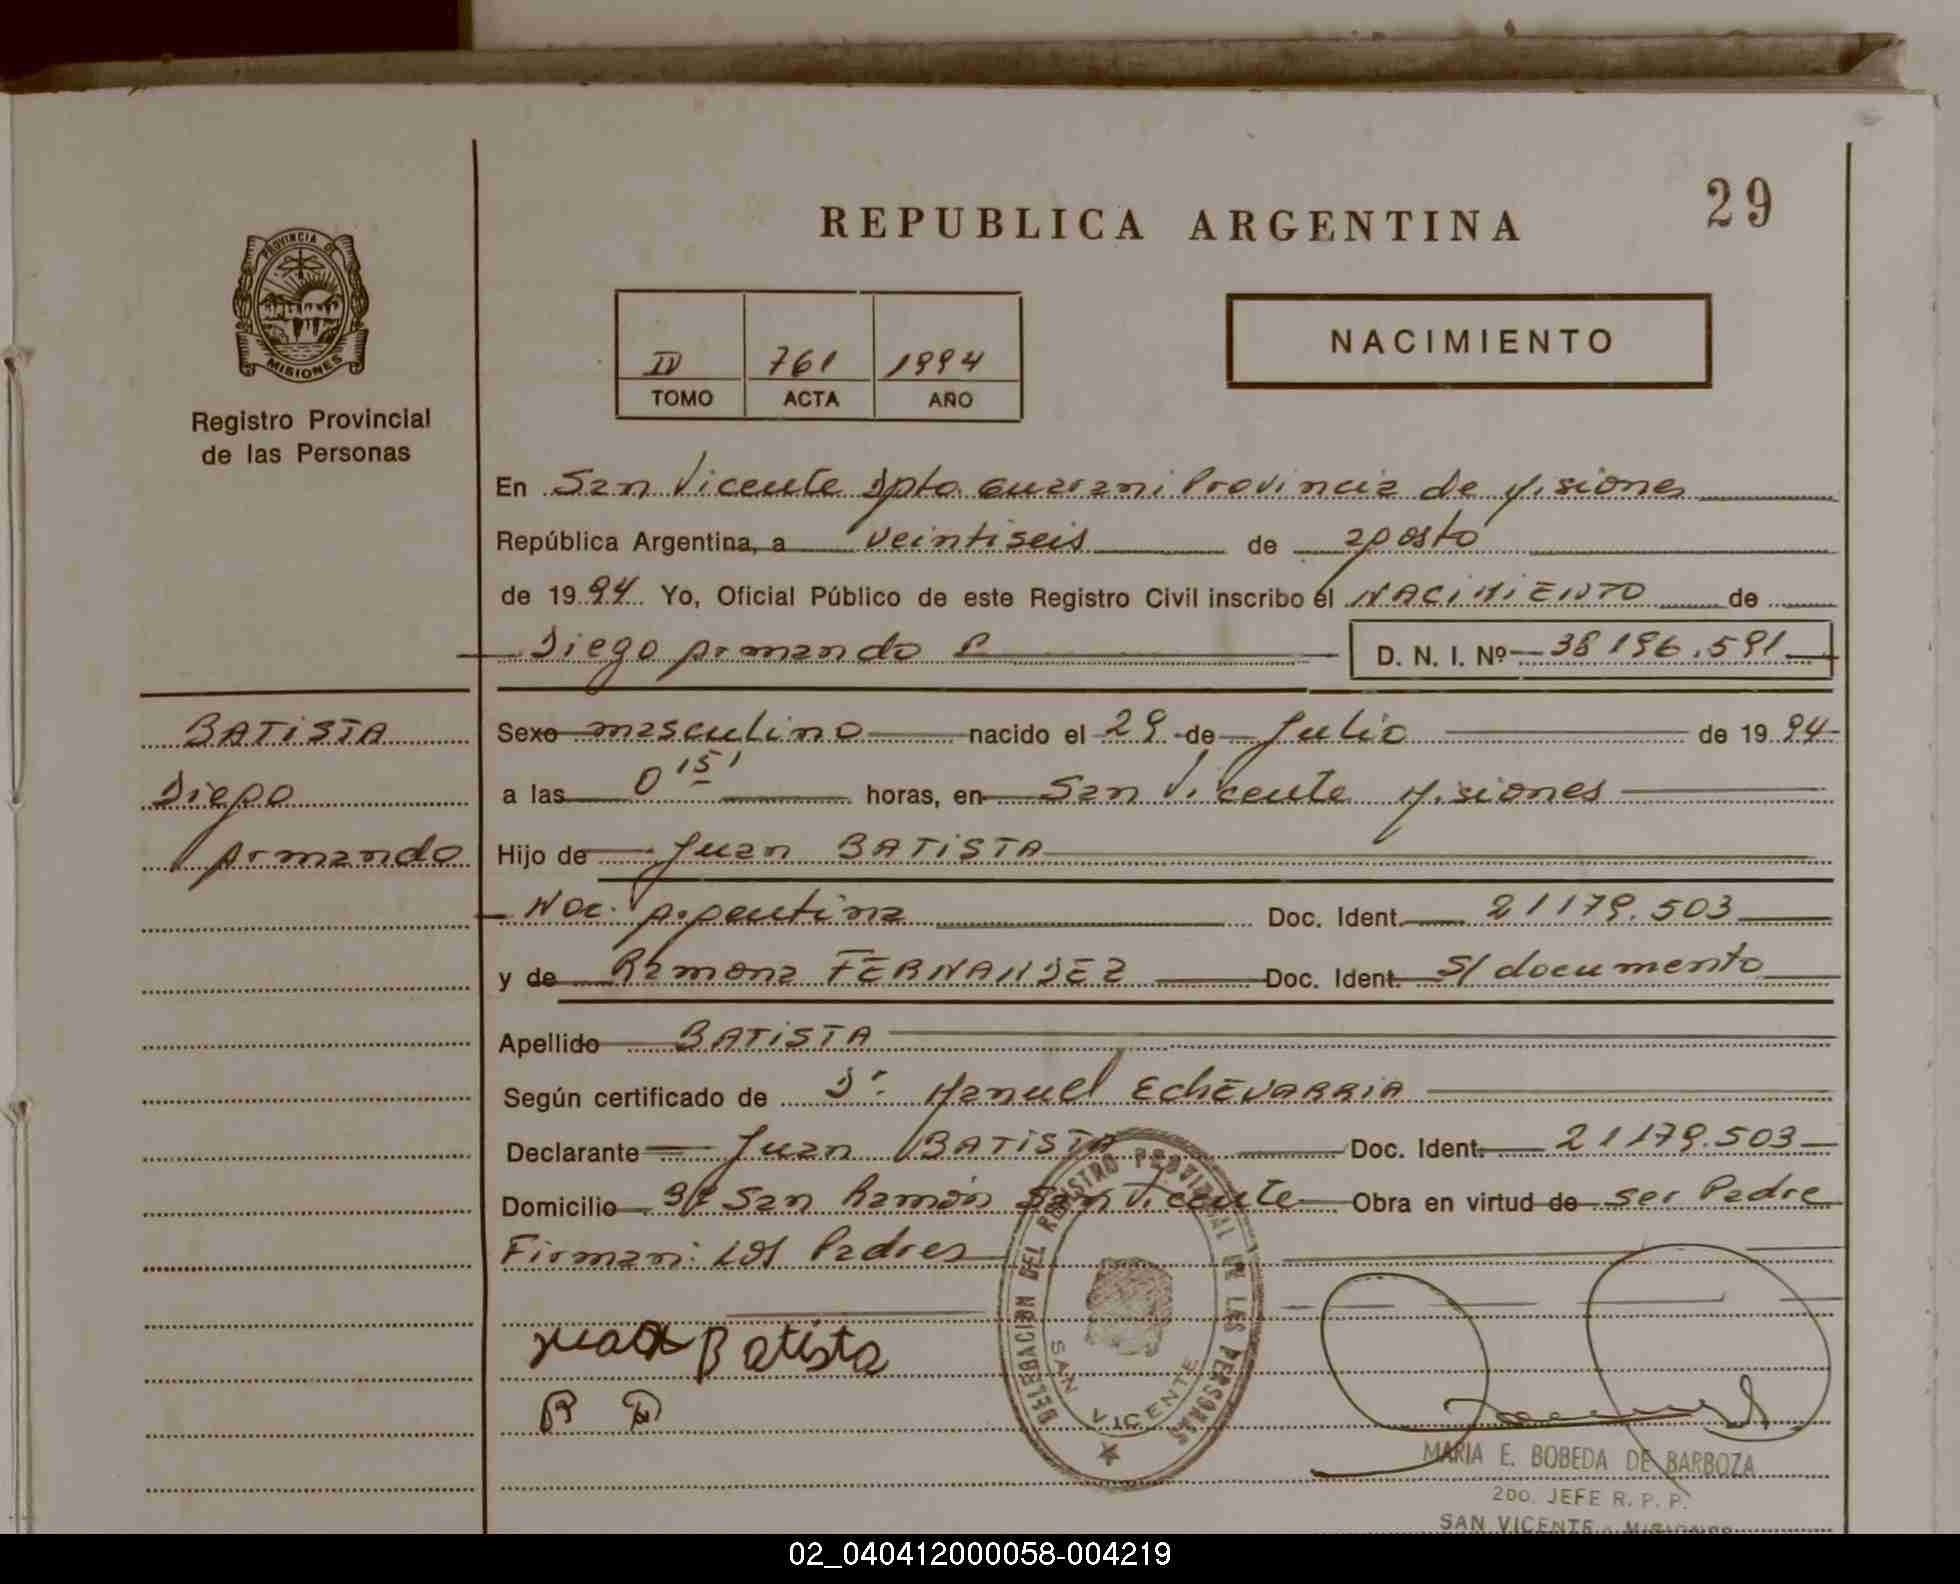 29
REPUBLICA ARGENTINA
PROVINCIA DE
MISIONES
Registro Provincial
de las Personas
IV 761 1994
TOMO ACTA AÑO
NACIMIENTO
En San Vicente Dpto Guarani Provincia de Misiones
República Argentina, a veintiseis de agosto
de 1994 Yo, Oficial Público de este Registro Civil inscribo el NACIMIENTO de
Diego Armando D. N. I. Nº 38196.591
BATISTA
Diego
Armando
Sexo masculino nacido el 29 de Julio de 1994
a las 0 15' horas, en San Vicente Misiones
Hijo de Juan BATISTA
Nac. Argentina Doc. Ident. 21179.503
y de Ramona FERNANDEZ Doc. Ident. S/documento
Apellido BATISTA
Según certificado de Dr. Manuel EchEVARRIA
Declarante Juan BATISTA Doc. Ident. 21179.503
Domicilio Bº San Ramón San Vicente Obra en virtud de ser Padre
Firman: los Padres
Juan Batista
DELEGACION DEL REGISTRO PROVINCIAL DE LAS PERSONAS
SAN VICENTE
MARIA E. BOBEDA DE BARBOZA
2DO. JEFE R. P. P.
SAN VICENTE - MISIONES
02_040412000058-004219